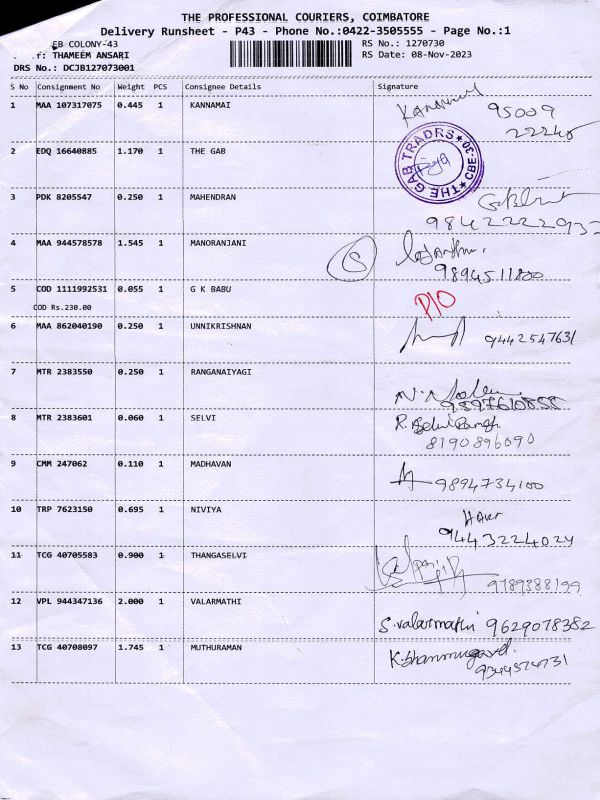 THE PROFESSIONAL COURIERS, COIMBATORE
Delivery Runsheet - P43 - Phone No.:0422-3505555 - Page No.:1
EB COLONY-43
RS No.: 1270730
f: THAMEEM ANSARI
RS Date: 08-Nov-2023
DRS No.: DCJB127073001
S No Consignment No Weight PCS Consignee Details Signature
1 MAA 107317075 0.445 1 KANNAMAI 95009
22240
2 EDQ 16640885 1.170 1 THE GAB
THE GAB TRADRS * CBE-30 *
3 PDK 8205547 0.250 1 MAHENDRAN
9842222937
4 MAA 944578578 1.545 1 MANORANJANI S
9894511800
5 COD 1111992531 0.055 1 G K BABU P/O
COD Rs.230.00
6 MAA 862040190 0.250 1 UNNIKRISHNAN 9442547631
7 MTR 2383550 0.250 1 RANGANAIYAGI
8 MTR 2383601 0.060 1 SELVI
8190896090
9 CMM 247062 0.110 1 MADHAVAN 9894734100
10 TRP 7623150 0.695 1 NIVIYA
9443224024
11 TCG 40705583 0.900 1 THANGASELVI
12 VPL 944347136 2.000 1 VALARMATHI
S.valarmathi 9629078382
13 TCG 40708097 1.745 1 MUTHURAMAN K.Shanmugavel.
9344574731